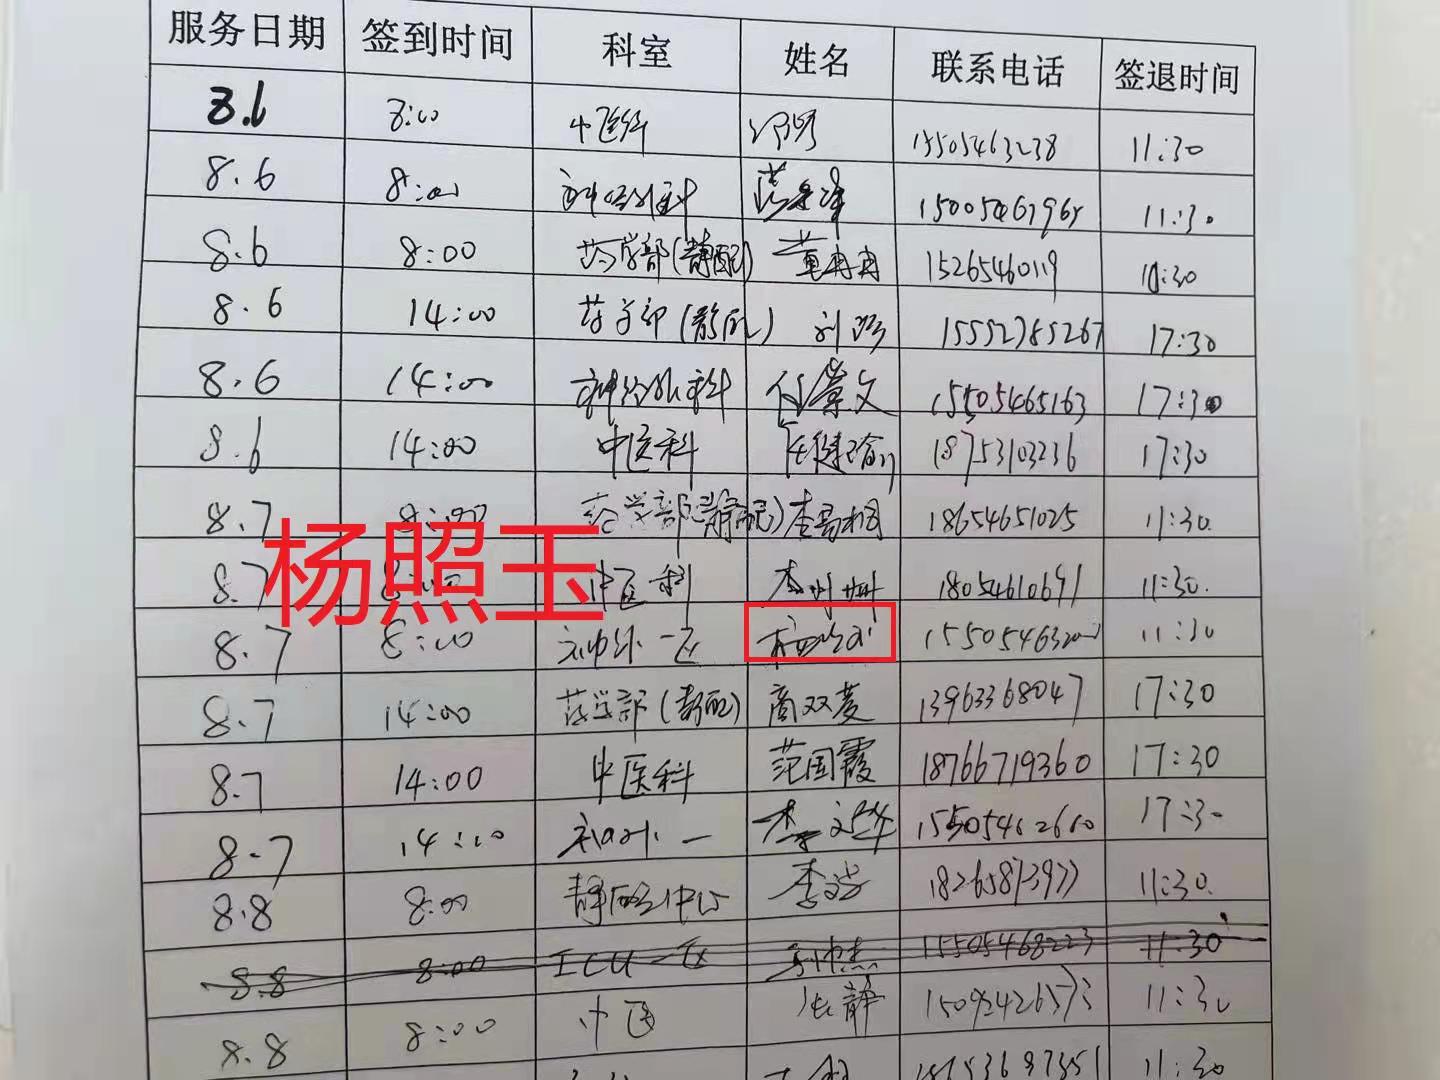 服务日期 签到时间 科室 姓名 联系电话 签退时间
8.6 8:00 中医科 15505463238 11:30
8.6 8:00 神经外科 1500546796 11:30
8.6 8:00 药学部(静配) 董冉冉 15265460119 11:30
8.6 14:00 药学部(静配) 刘 15552785267 17:30
8.6 14:00 神经外科 付崇文 15505465163 17:30
8.6 14:00 中医科 任健瑜 18753103236 17:30
8.7 8:00 药学部(静配) 李易桐 18654651025 11:30.
杨照玉
8.7 8:00 中医科 18054610691 11:30.
8.7 8:00 神外一区 155054632 11:30
8.7 14:00 药学部(静配) 商双菱 13963368047 17:30
8.7 14:00 中医科 范国霞 18766719360 17:30
8.7 14:00 神外一 李文华 15505462660 17:30
8.8 8:00 静配中心 李 18265873977 11:30.
8.8 8:00 ICU一区 15505468223 11:30
8.8 8:00 中医 张静 11:30
11:30